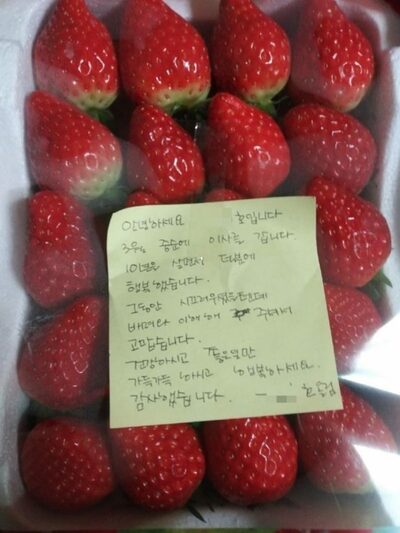 안녕하세요 호입니다
3월 중순에 이사를 갑니다.
10년을 살면서 덕분에
행복했습니다.
그동안 시끄러웠을텐데
배려와 이해해 주셔서
고맙습니다.
건강하시고 좋은일만
가득가득 하시고 행복하세요.
감사했습니다. 호 드림